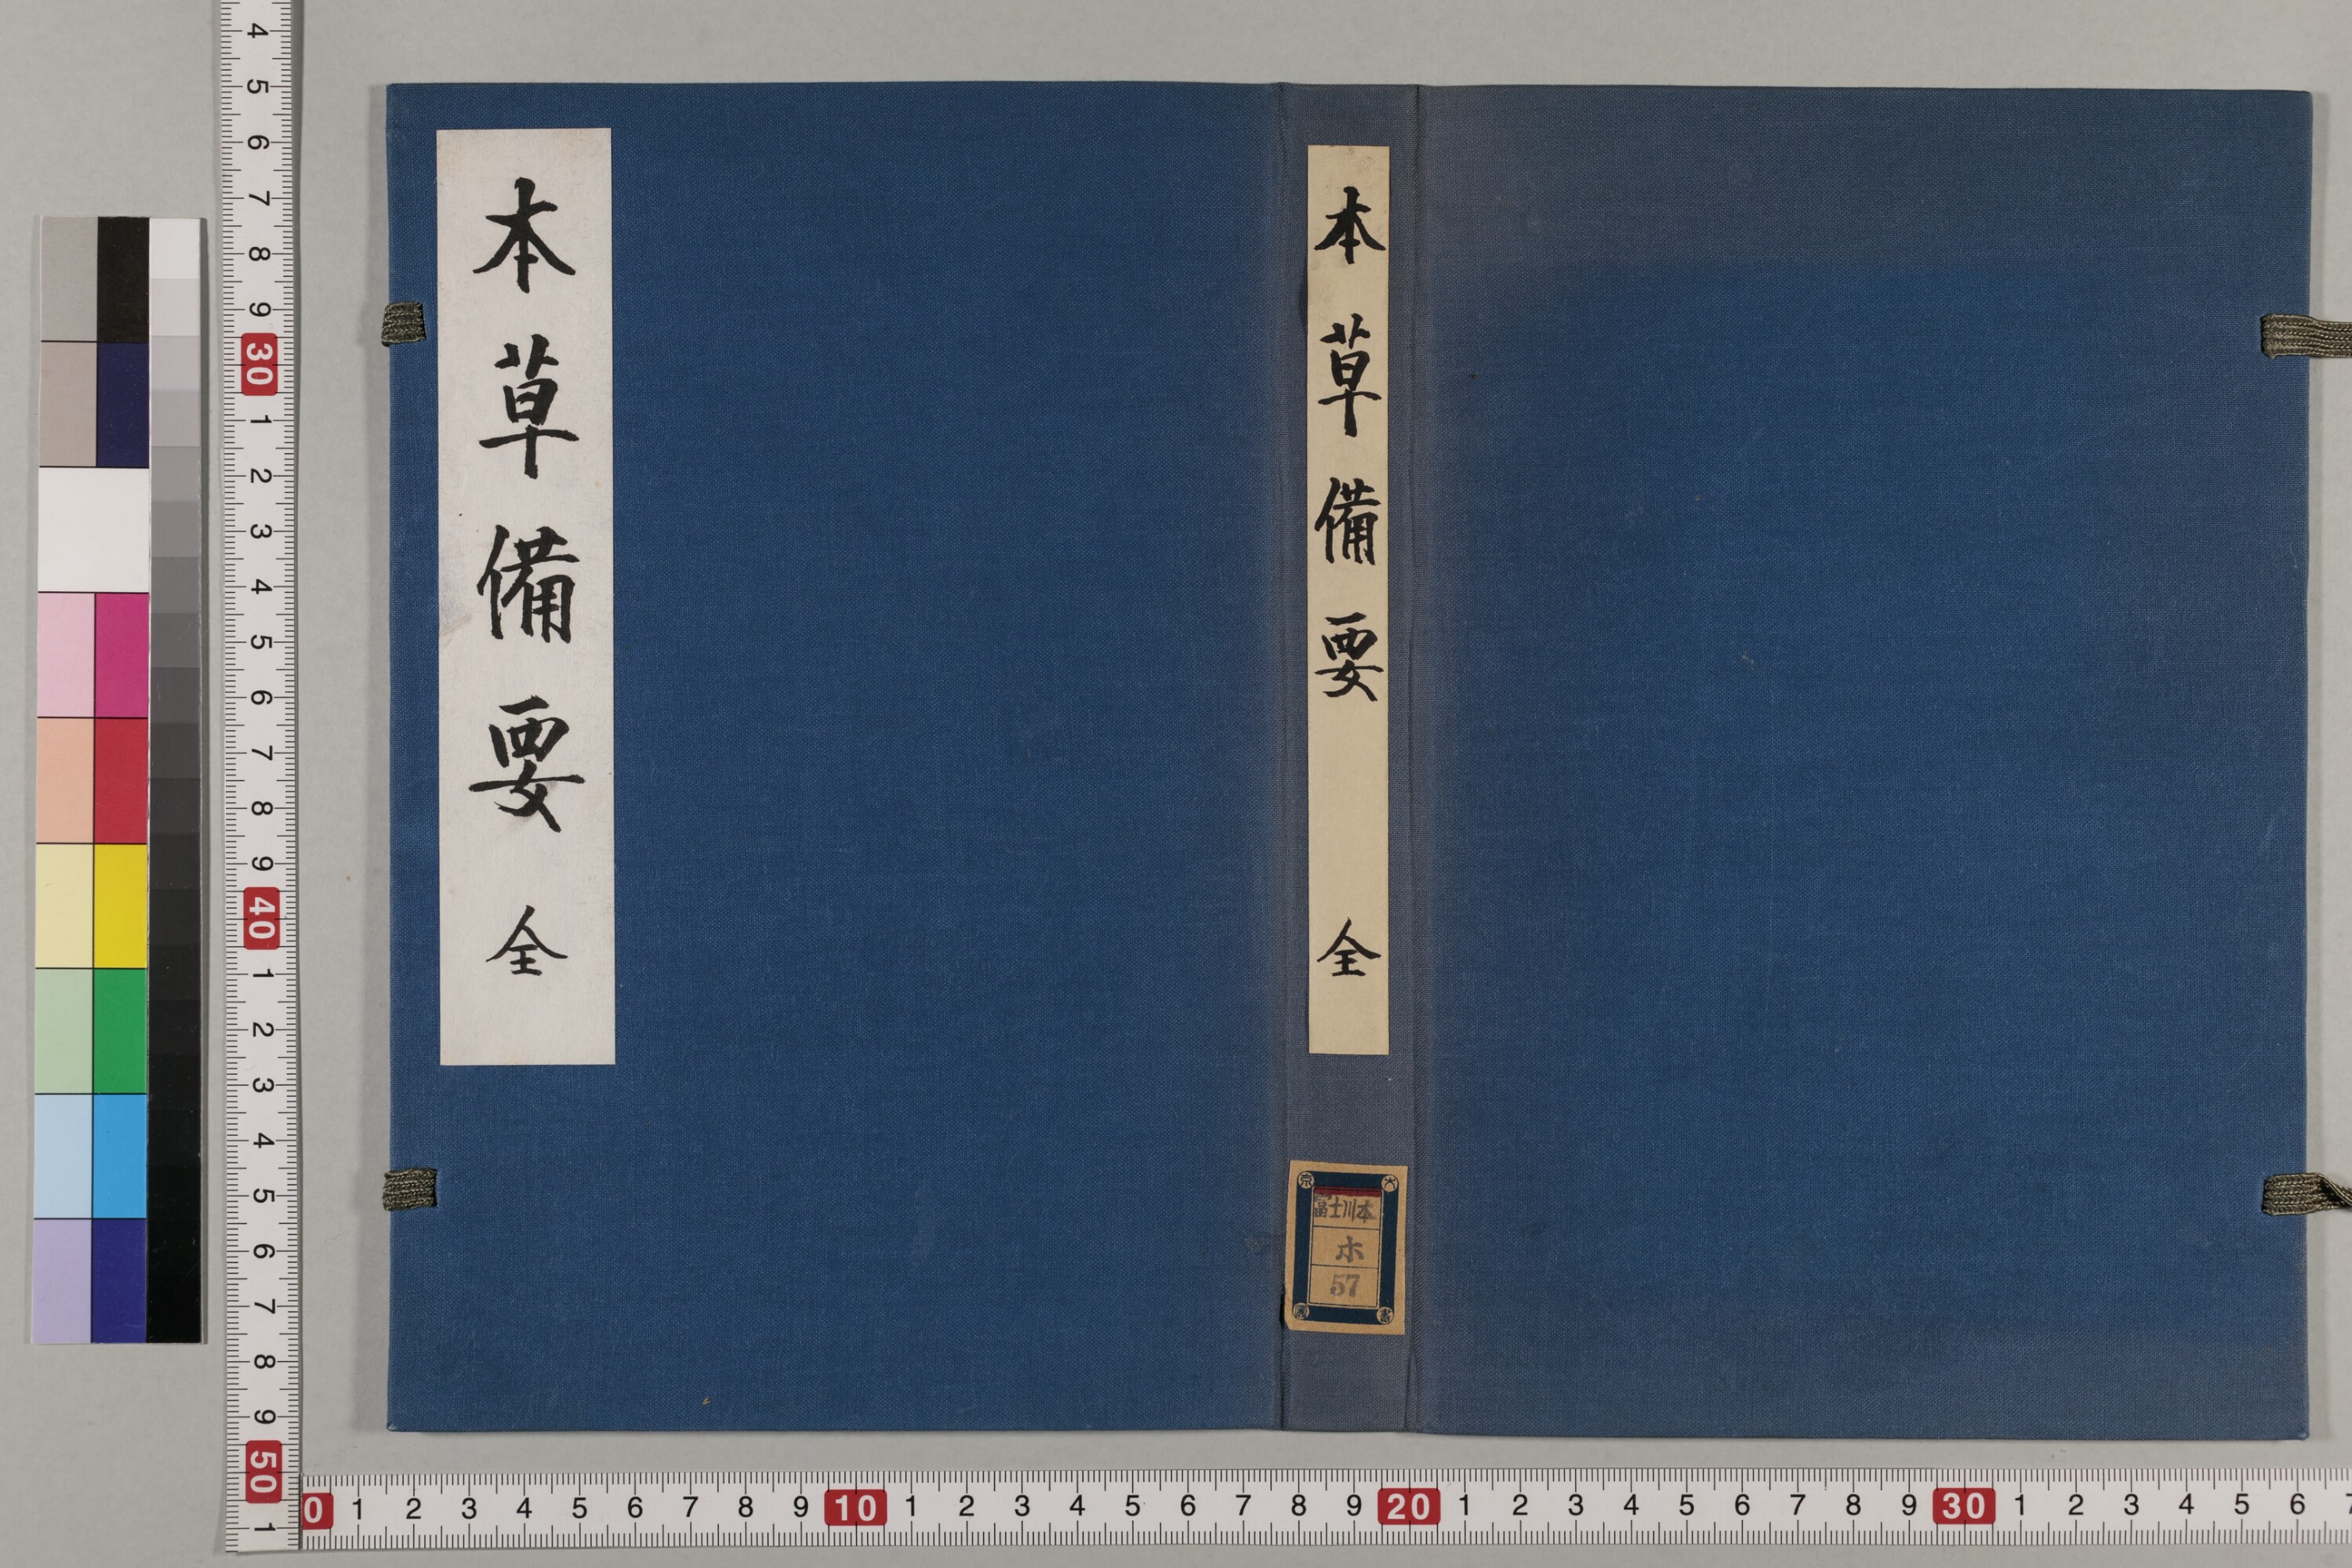 本草備要 全
本草備要 全
富士川本
ホ
57
4 5 6 7 8 9 30 1 2 3 4 5 6 7 8 9 40 1 2 3 4 5 6 7 8 9 50 1
0 1 2 3 4 5 6 7 8 9 10 1 2 3 4 5 6 7 8 9 20 1 2 3 4 5 6 7 8 9 30 1 2 3 4 5 6 7